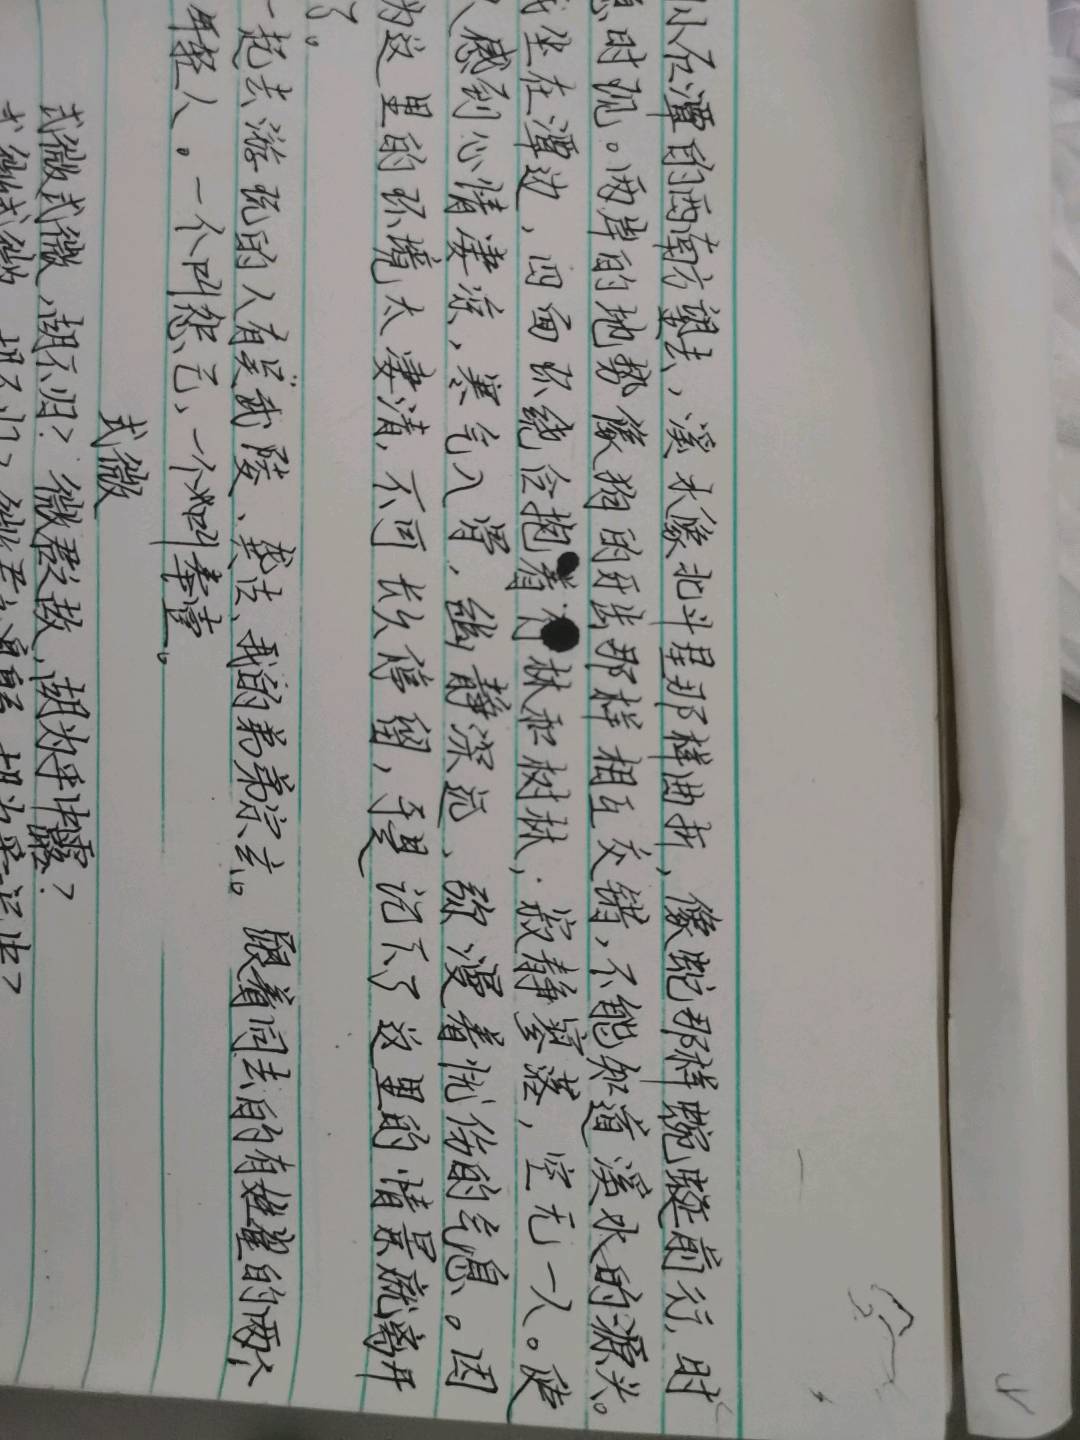 小石潭的西南方望去，溪水像北斗星那样曲折，像蛇那样蜿蜒前行，时
时现。两岸的地势像狗的牙齿那样相互交错，不能知道溪水的源头。
我坐在潭边，四面环绕合抱着竹林和树林，寂静寥落，空无一人。使
人感到心情凄凉，寒气入骨，幽静深远、弥漫着忧伤的气息。因
为这里的环境太凄清，不可长久停留，于是记下了这里的情景就离开
了。
一起去游玩的人有吴武陵、龚古、我的弟弟宗玄。跟着同去的有姓崔的两个
年轻人。一个叫恕己、一个叫奉壹。
式微
式微式微，胡不归？微君之故，胡为乎中露？
式微式微，胡不归？微君之躬，胡为乎泥中？